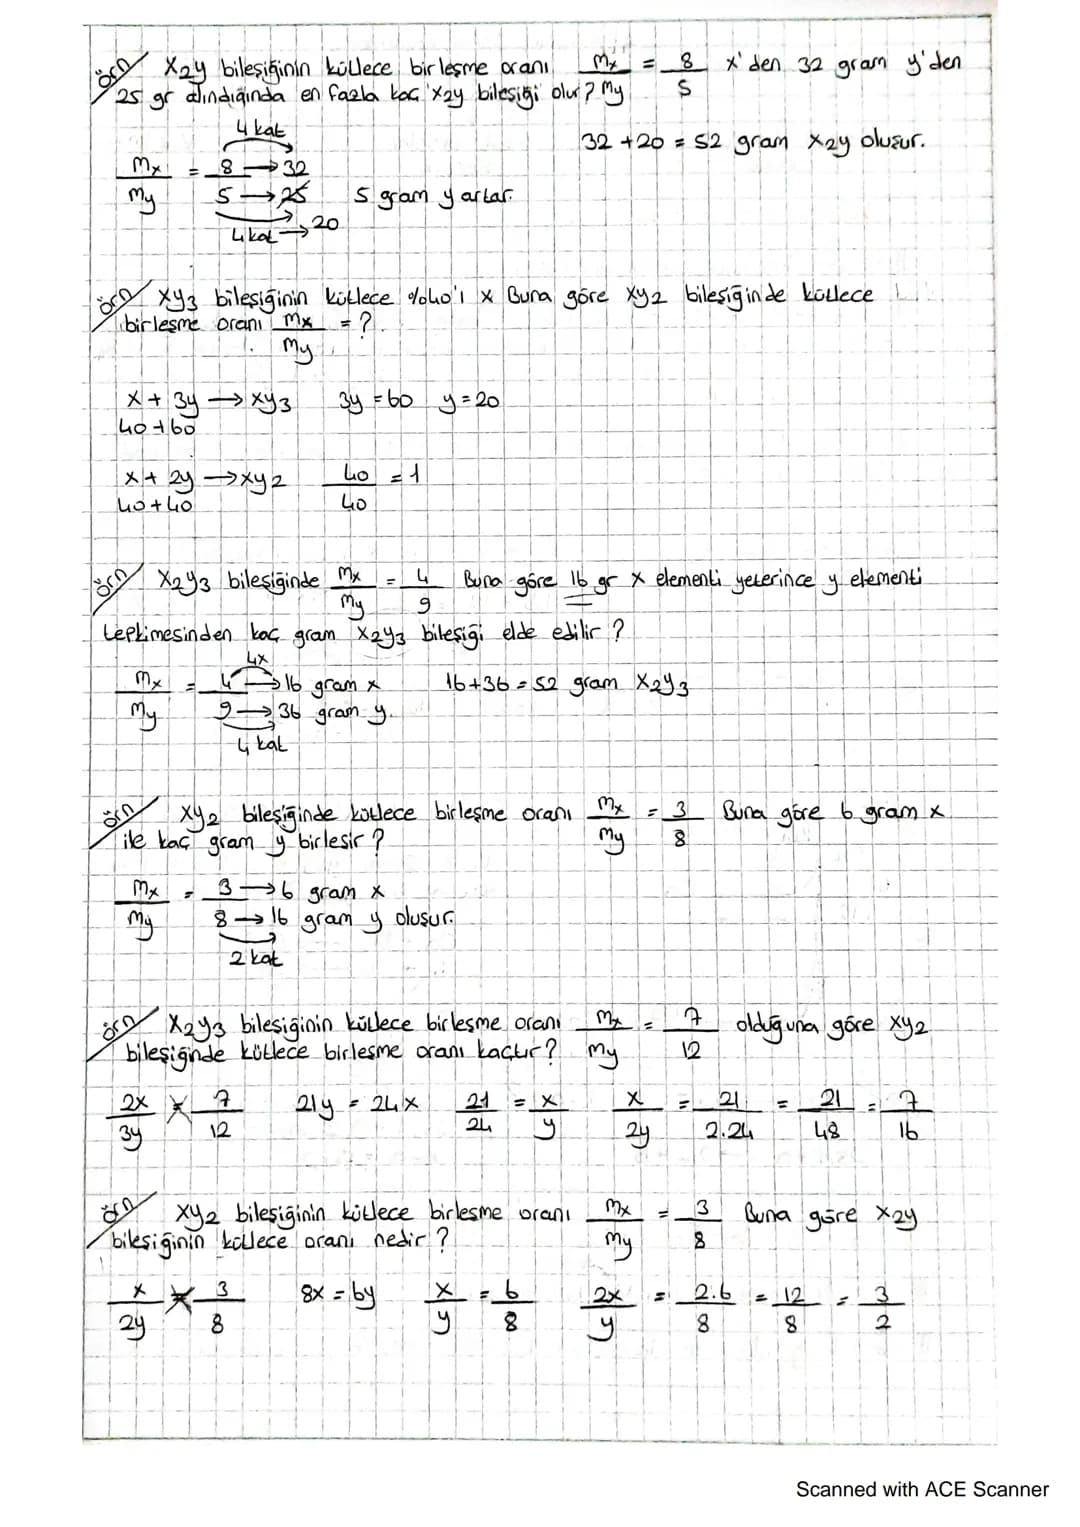 örn/ X2y bileşiğinin kütlece birleşme oranı mx/my = 8/5 x'den 32 gram y'den
25 gr alındığında en fazla kaç x2y bileşiği olur?
4 kat
32 + 20 = 52 gram x2y oluşur.
mx/my = 8 → 32
5 → 25 5 gram y artar.
4 kat → 20
örn/ xy3 bileşiğinin kütlece %40'ı x Buna göre xy2 bileşiğinde kütlece
birleşme oranı mx/my = ?
x + 3y → xy3 3y = 60 y = 20
40+60
x + 2y → xy2 40/40 = 1
40+40
örn/ X2y3 bileşiğinde mx/my = 4/9 Buna göre 16 gr x elementi yeterince y elementi
tepkimesinden kaç gram x2y3 bileşiği elde edilir?
4x
mx/my = 4 → 16 gram x 16+36 = 52 gram x2y3
9 → 36 gram y.
4 kat
örn/ xy2 bileşiğinde kütlece birleşme oranı mx/my = 3/8 Buna göre 6 gram x
ile kaç gram y birleşir?
mx/my = 3 → 6 gram x
8 → 16 gram y oluşur.
2 kat
örn/ X2y3 bileşiğinin kütlece birleşme oranı mx/my = 7/12 olduğuna göre xy2
bileşiğinde kütlece birleşme oranı kaçtır?
2x/3y = 7/12 21y = 24x 21/24 = x/y x/2y = 21/2.24 = 21/48 = 7/16
örn/ xy2 bileşiğinin kütlece birleşme oranı mx/my = 3/8 Buna göre x2y
bileşiğinin kütlece oranı nedir?
x/2y = 3/8 8x = 6y x/y = 6/8 2x/y = 2.6/8 = 12/8 = 3/2
Scanned with ACE Scanner